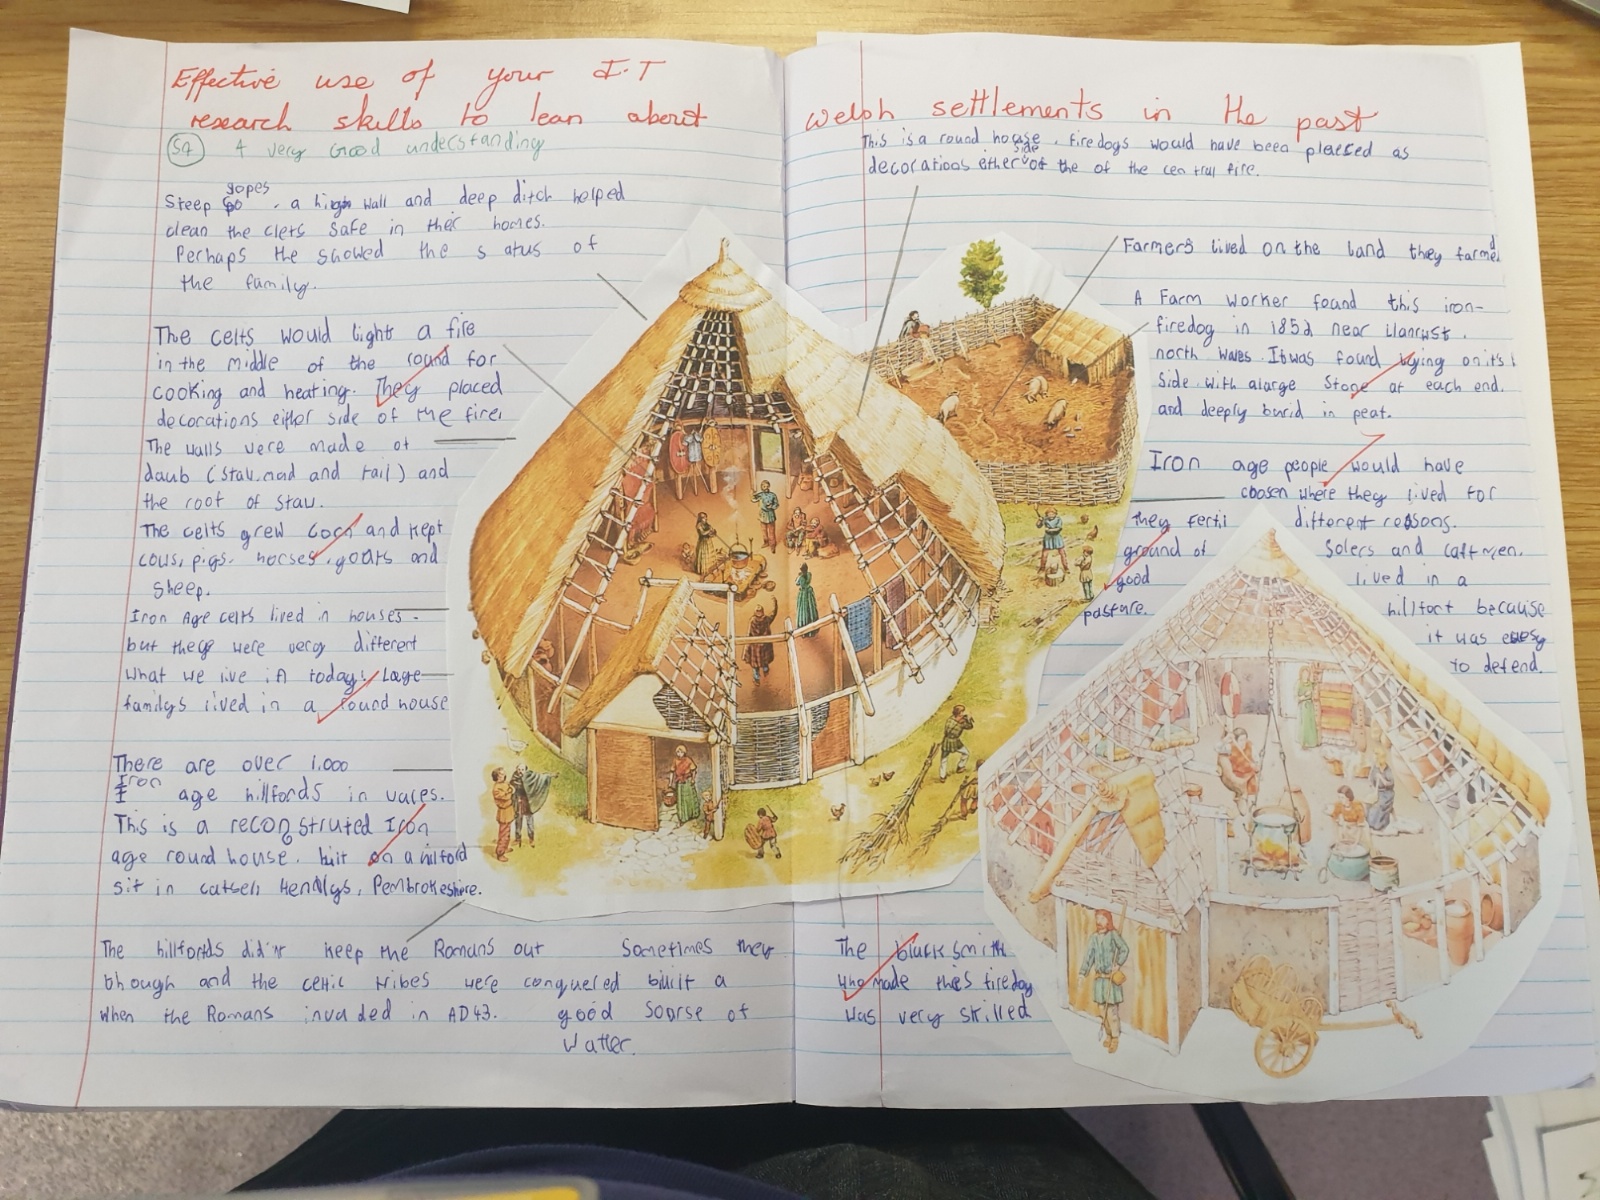 Effective use of your I.T
research skills to lean about
welsh settlements in the past
A very Good understanding
Steep sopes. a high wall and deep ditch helped
clean the clets safe in ther homes.
Perhaps the showed the satus of
the family.
The celts would light a fire
in the middle of the round for
cooking and heating. They placed
decorations either side of the fire,
The walls were made of
daub (staw.mad and tail) and
the roof of staw.
The celts grew corn and kept
cous, pigs. horses, goats and
sheep.
Iron Age celts lived in houses.
but they were very different
what we live in today. Lage
familys lived in a round house
There are over 1.000
Iron age hillfords in wales.
This is a reconstruted Iron
age round house. biit on a hilford
sit in catsell Henllys, Pembrokeshire.
The hillfords didn't keep the Romans out
though and the celtic tribes were conquered
when the Romans invaded in AD43.
Sometimes they
biuilt a
good soorse of
watter.
This is a round house. firedogs would have been placed as
decorations either side of the of the cen tral fire.
Farmers lived on the land they farmed
A Farm worker found this iron-
firedog in 1852 near Llanrwst.
north wales. It was found lying on it's
side with a large stone at each end.
and deeply burid in peat.
Iron age people would have
choosen where they lived for
different reasons.
Solers and caftmen.
lived in a
hillfort because
it was easy
to defend.
they ferti
ground of
good
pasture.
The blacksmith
who made this firedog
was very skilled